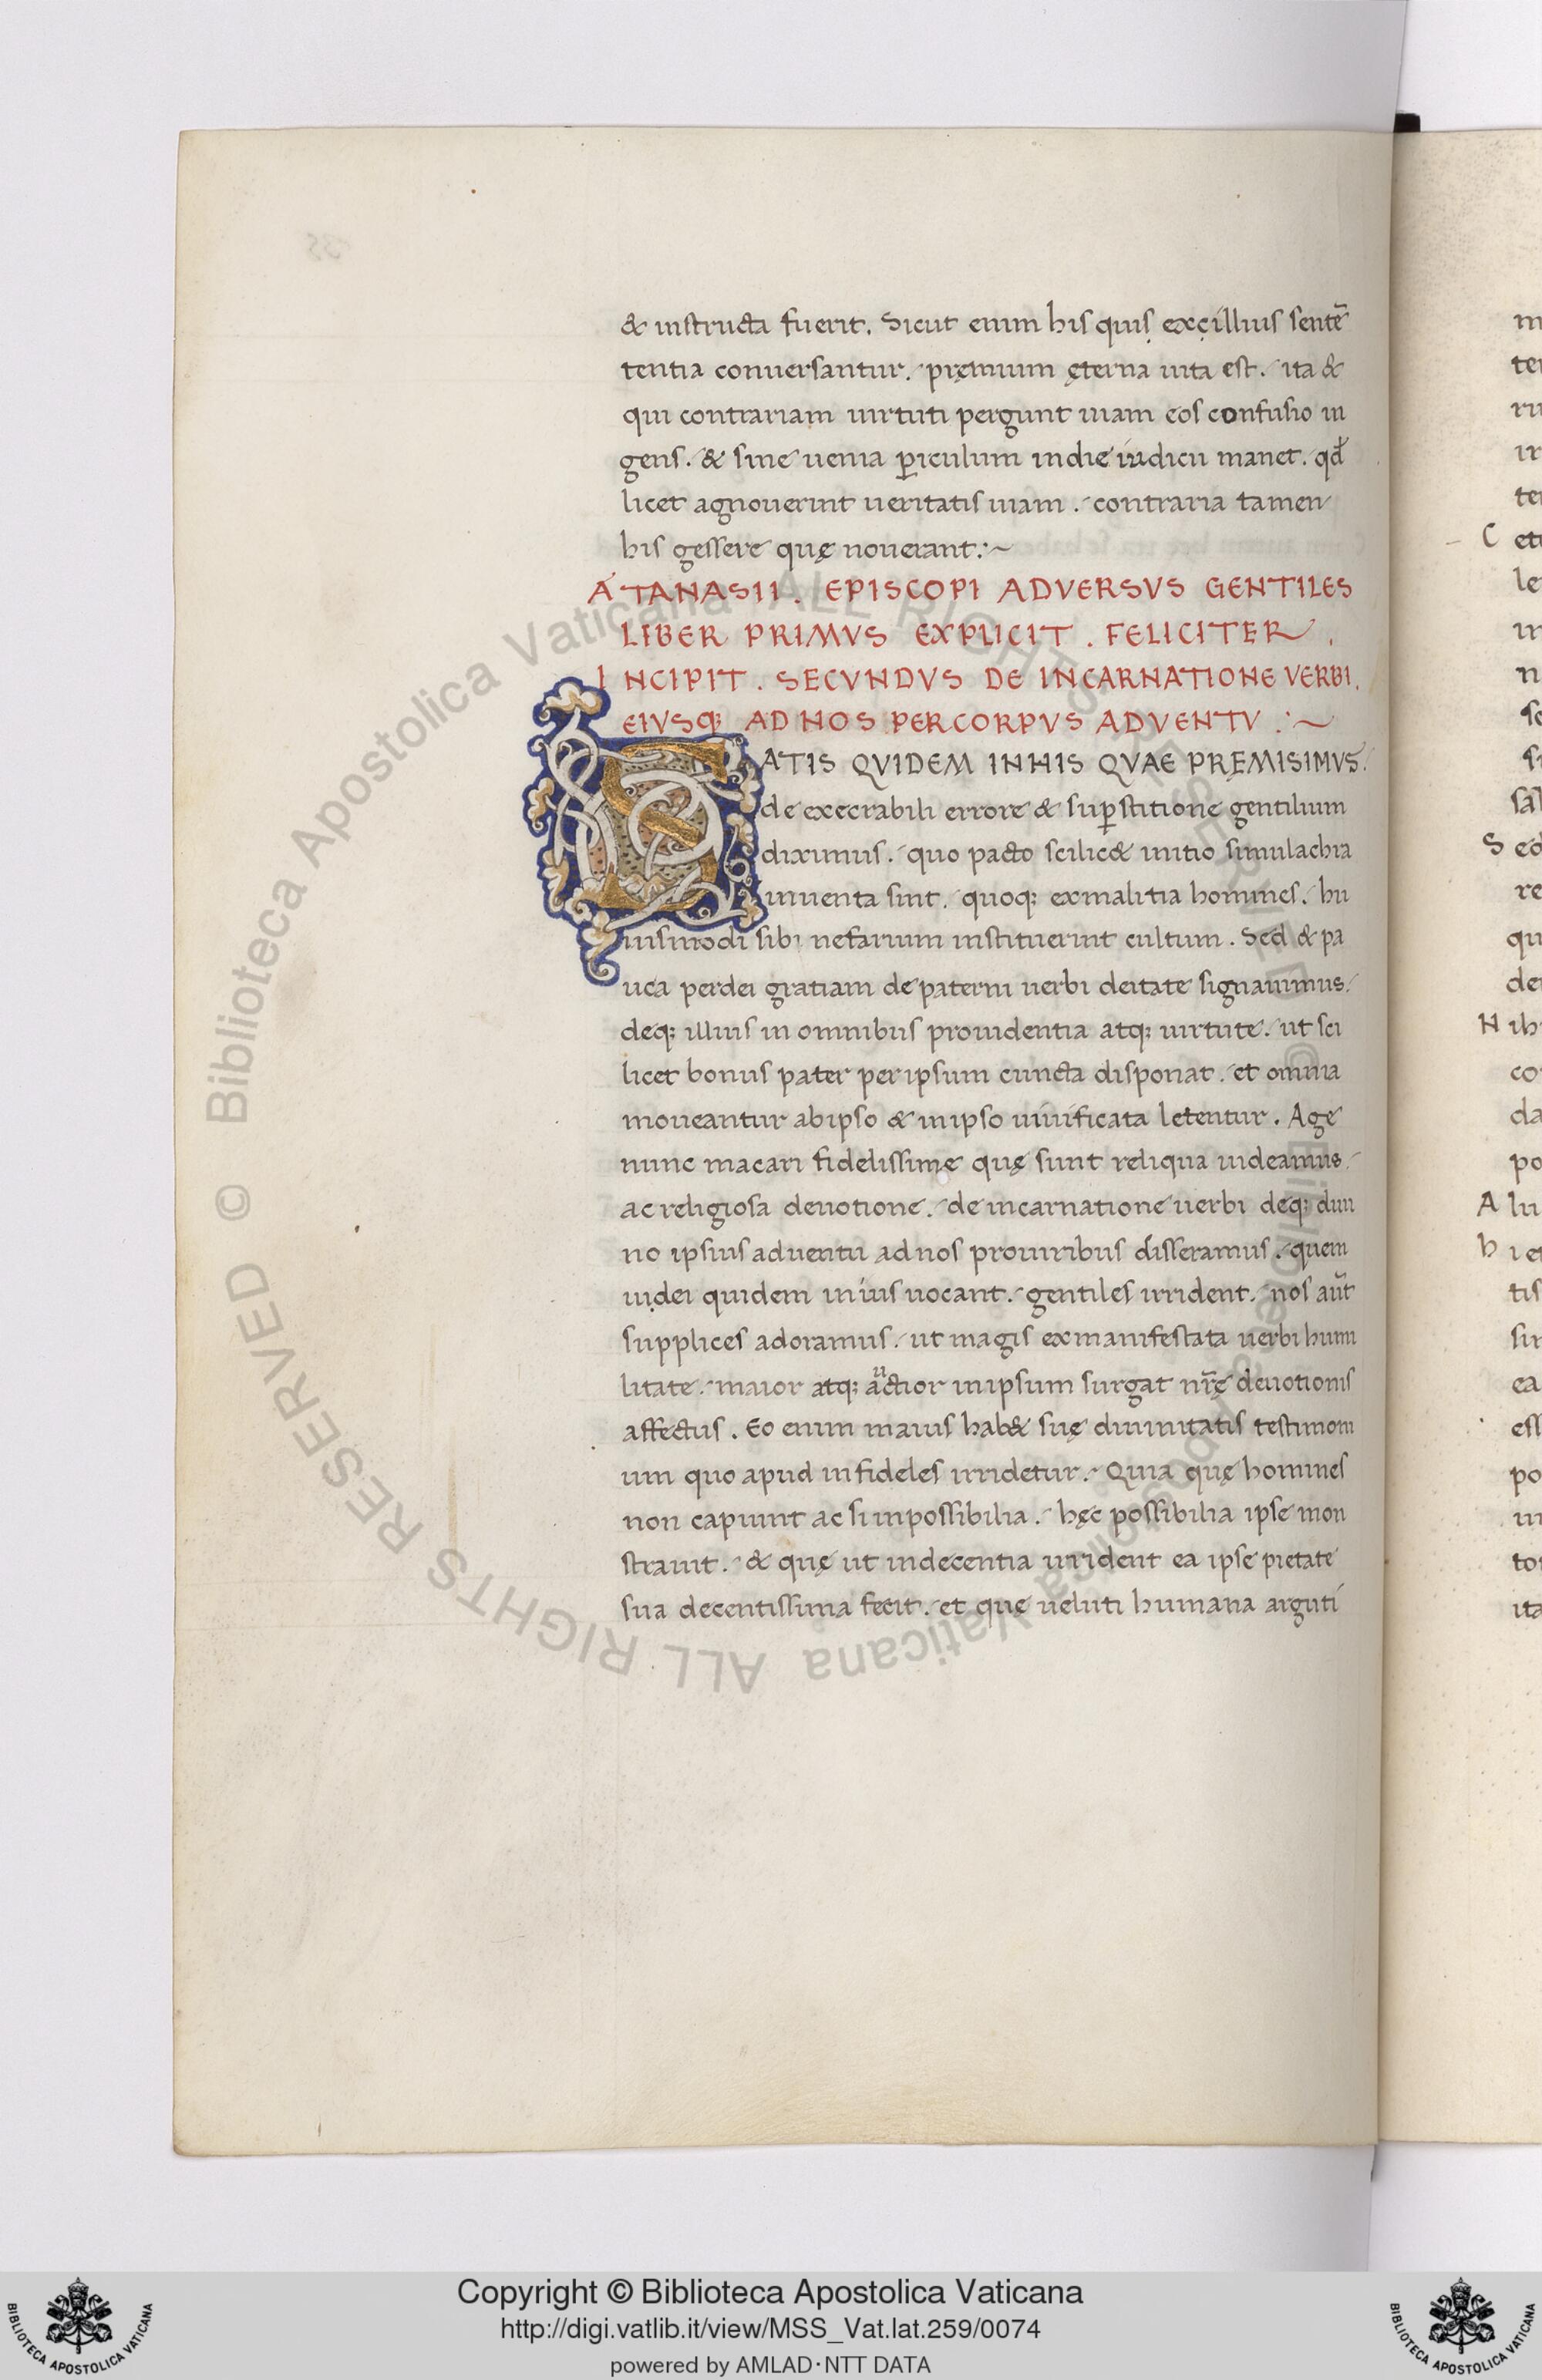 & instructa fuerit. Sicut enim his quis exçillius sentē
tentia conuersantur. pręmium ęterna uita est. ita &
qui contrariam uirtuti pergunt uiam eos confusio in
gens. & sine uenia ꝑiculum indie iudicii manet. qđ
licet agnouerint ueritatis uiam. contraria tamen
his gessere quę nouerant:~
ATANASII. EPISCOPI ADVERSVS GENTILES
LIBER PRIMVS EXPLICIT. FELICITER.
INCIPIT. SECVNDVS DE INCARNATIONE VERBI.
EIVSQ; AD NOS PER CORPVS ADVENTV :~
SATIS QVIDEM IN HIS QVAE PRĘMISIMVS.
de execrabili errore & suꝑstitione gentilium
diximus. quo pacto scilic& initio simulachra
inuenta sint. quoq; exmalitia homines. hu
iusmodi sibi nefarium instituerint cultum. Sed & pa
uca perdei gratiam de paterni uerbi deitate signauimus.
deq; illius in omnibus prouidentia atq; uirtute. ut sci
licet bonus pater per ipsum cuncta disponat. et omnia
moueantur abipso & inipso uiuificata letentur. Age
nunc macari fidelissime quę sunt reliqua uideamus.
ac religiosa deuotione. de incarnatione uerbi deq; diui
no ipsius aduentu adnos prouiribus disseramus. quem
iudei quidem inius uocant. gentiles irrident. nos aut̄
supplices adoramus. ut magis exmanifestata uerbi humi
litate. maior atq; auctior inipsum surgat nr̄ę deuotionis
affectus. Eo enim maius hab& suę diuinitatis testimoni
um quo apud infideles irridetur. Quia quę homines
non capiunt ac si inpossibilia. hęc possibilia ipse mon
strauit. & quę ut indecentia irrident ea ipse pietate
sua decentissima fecit. et quę ueluti humana arguti
m
te
ru
ir
te
C et
le
in
n
so
si
sal
S ed
re
qu
de
N ih
co
da
po
A lu
h ie
tis
sin
ea
ess
po
ui
to
ita
© Biblioteca Apostolica Vaticana ALL RIGHTS RESERVED
© Biblioteca Apostolica Vaticana ALL RIGHTS RESERVED
Copyright © Biblioteca Apostolica Vaticana
http://digi.vatlib.it/view/MSS_Vat.lat.259/0074
powered by AMLAD·NTT DATA
BIBLIOTECA APOSTOLICA VATICANA
BIBLIOTECA APOSTOLICA VATICANA